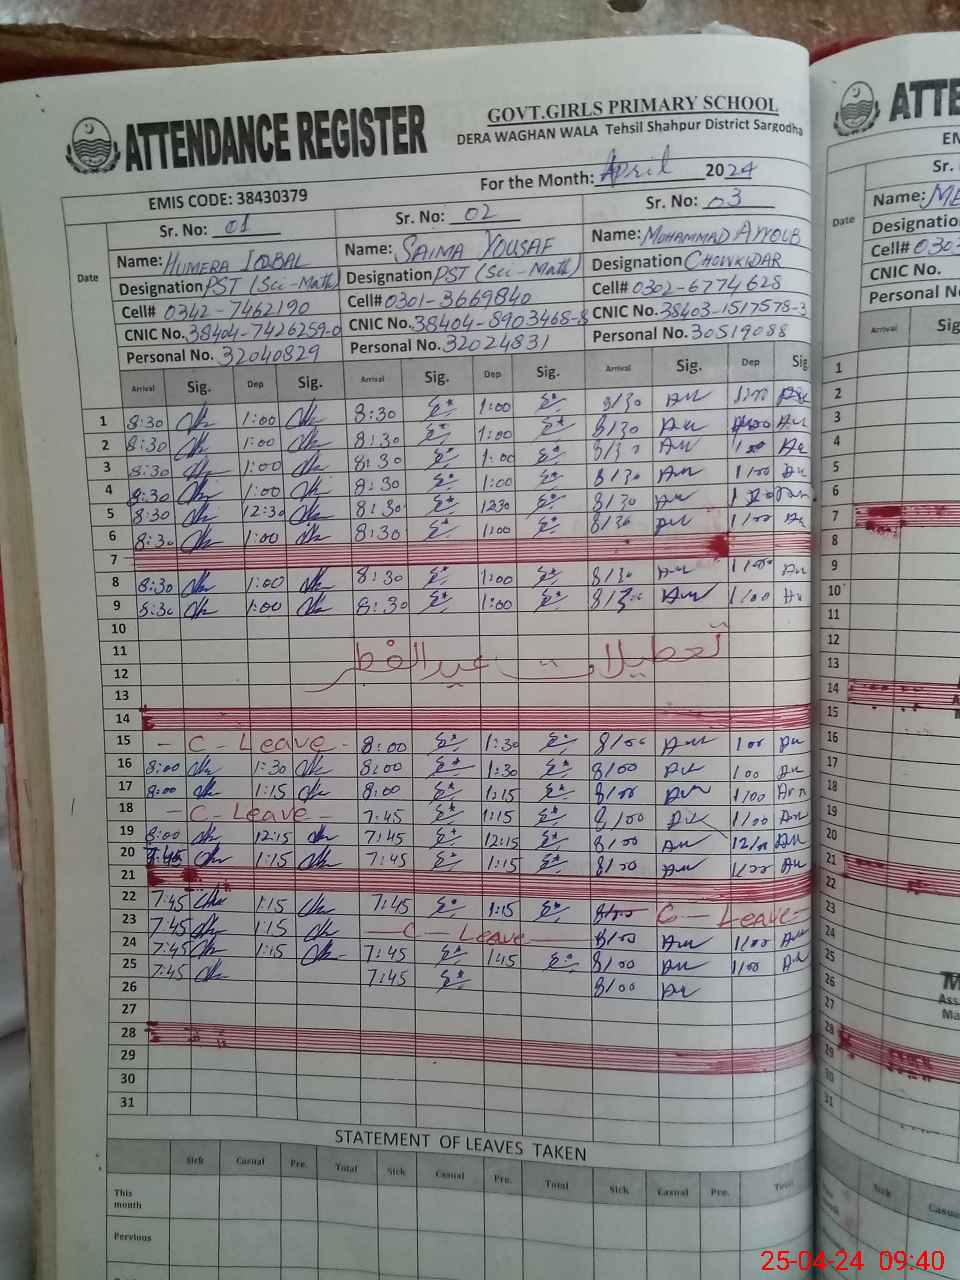 ATTENDANCE REGISTER
GOVT.GIRLS PRIMARY SCHOOL
DERA WAGHAN WALA Tehsil Shahpur District Sargodha
EMIS CODE: 38430379
For the Month: April 2024
Sr. No: 01 Sr. No: 02 Sr. No: 03
Date
Name: HUMERA IQBAL Name: SAIMA YOUSAF Name: MOHAMMAD AYYOUB
Designation PST (Sci-Math) Designation PST (Sci-Math) Designation CHOWKIDAR
Cell# 0342-7462190 Cell# 0301-3669840 Cell# 0302-6774628
CNIC No. 38404-7426259-0 CNIC No. 38404-8903468-8 CNIC No. 38403-1517578-3
Personal No. 32040829 Personal No. 32024831 Personal No. 30519088
Arrival Sig. Dep Sig. Arrival Sig. Dep Sig. Arrival Sig. Dep Sig.
1 8:30 1:00 8:30 1:00 8/30 1/00
2 8:30 1:00 8:30 1:00 8/30
3 8:30 1:00 8:30 1:00 8/30 1 00
4 8:30 1:00 8:30 1:00 8/30 1/00
5 8:30 12:30 8:30 1230 8/30
6 8:30 1:00 8:30 1:00 8/30 1/00
7
8 8:30 1:00 8:30 1:00 8/30 1/00
9 8:30 1:00 8:30 1:00 8/30 1/00
10
11
تعطیلات عیدالفطر
12
13
14
15 - C - Leave - 8:00 1:30 8/00 1 00
16 8:00 1:30 8:00 1:30 8/00 1 00
17 8:00 1:15 8:00 1:15 8/00 1/00
18 - C - Leave - 7:45 1:15 8/00 1/00
19 8:00 12:15 7:45 12:15 8/00 12/00
20 7:45 1:15 7:45 1:15 8/00 1/00
21
22 7:45 1:15 7:45 1:15 8/00 C - Leave -
23 7:45 1:15 - C - Leave 8/00 1/00
24 7:45 1:15 7:45 1:45 8/00 1/00
25 7:45 7:45 8/00
26
27
28
29
30
31
STATEMENT OF LEAVES TAKEN
Sick Casual Pre. Total Sick Casual Pre. Total Sick Casual Pre. Total
This month
Pervious
ATTE
EM
Sr.
Date
Name: ME
Designation
Cell# 030
CNIC No.
Personal N
Arrival Sig
1
2
3
4
5
6
7
8
9
10
11
12
13
14
15
16
17
18
19
20
21
22
23
24
25
26
27
28
29
30
31
Ass
Ma
Sick Casu
25-04-24 09:40